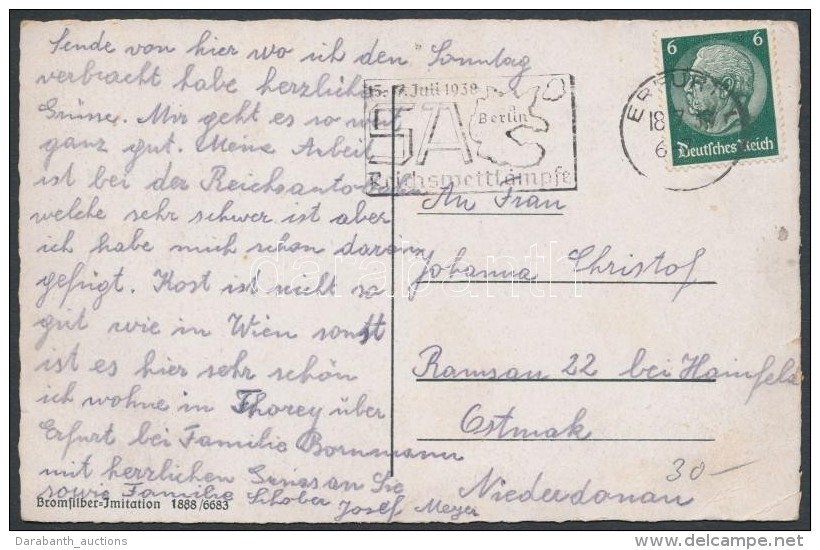 Sende von hier wo ich den Sonntag
verbracht habe herzliche
Grüsse. Mir geht es so weit
ganz gut. Meine Arbeit
ist bei der Reichsautobahn
welche sehr schwer ist aber
ich habe mich schon darein
gefügt. Kost ist nicht so
gut wie in Wien sonst
ist es hier sehr schön
ich wohne in Thorey über
Erfurt bei Familie Bornmann
mit herzlichen Grüss an Sie
sowie Familie Schober Josef Meyer
Bromsilber=Imitation 1888/6683
Juli 1938
Berlin
SA
Reichswettkämpfe
ERFURT
18
6 6
Deutsches Reich
An Frau
Johanna Christof
Ramsau 22 bei Hainfeld
Ostmak
Niederdonau
30-
darabanth
Darabanth_auctions
delcampe.net